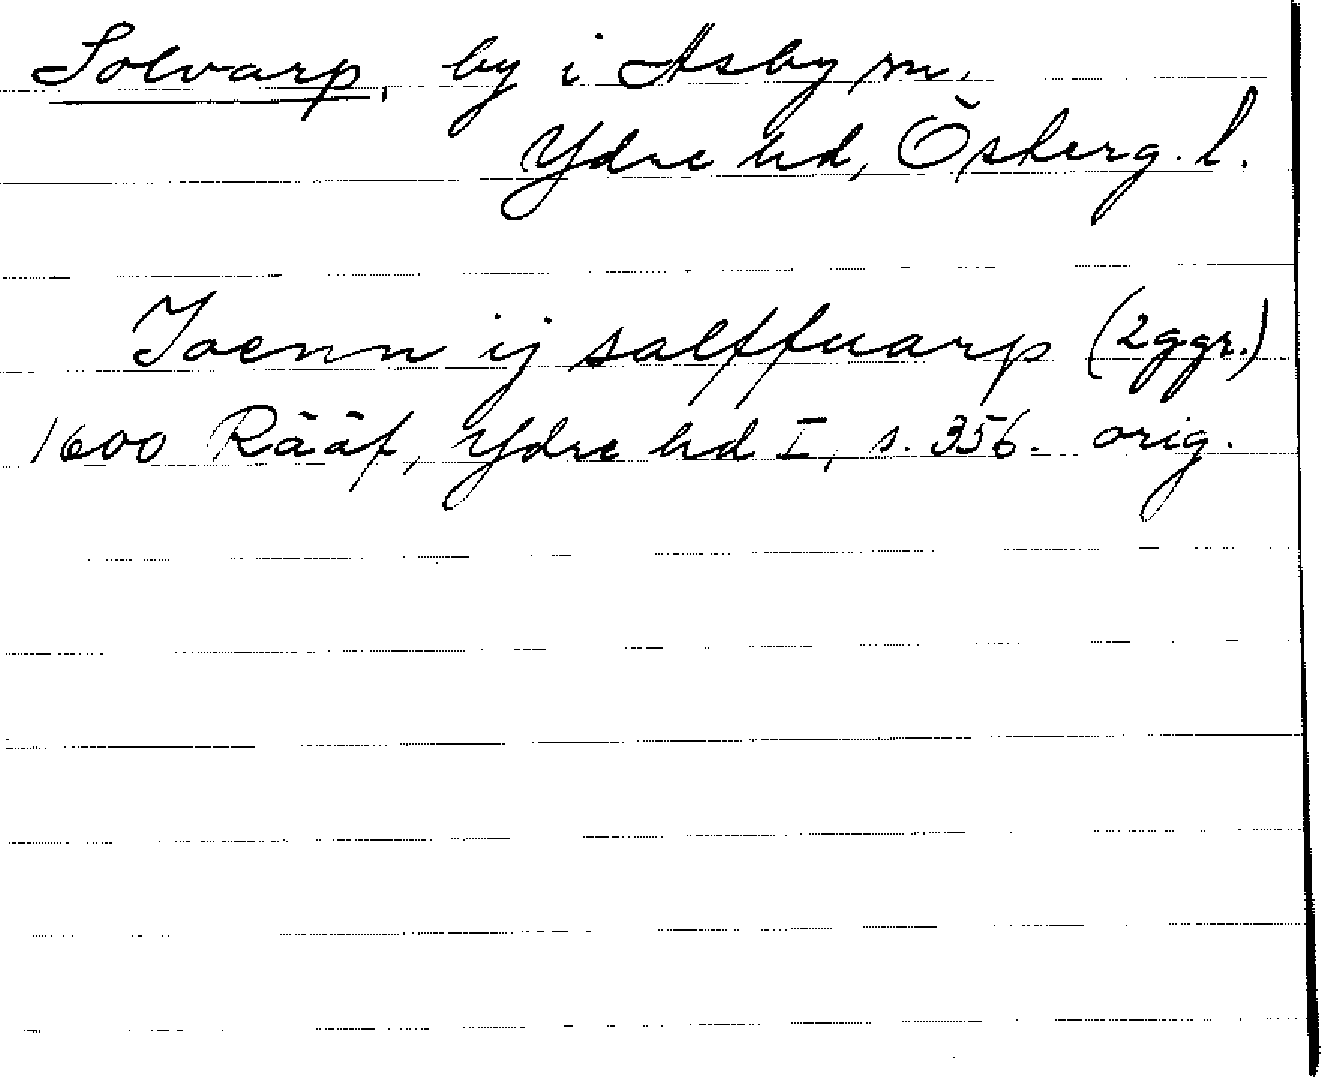 Solvarp, by i Asby sn.
Ydre hd, Österg. l.
Joenn ij salffuarp (2ggr.)
1600 Rääf, Ydre hd I, s. 356. orig.